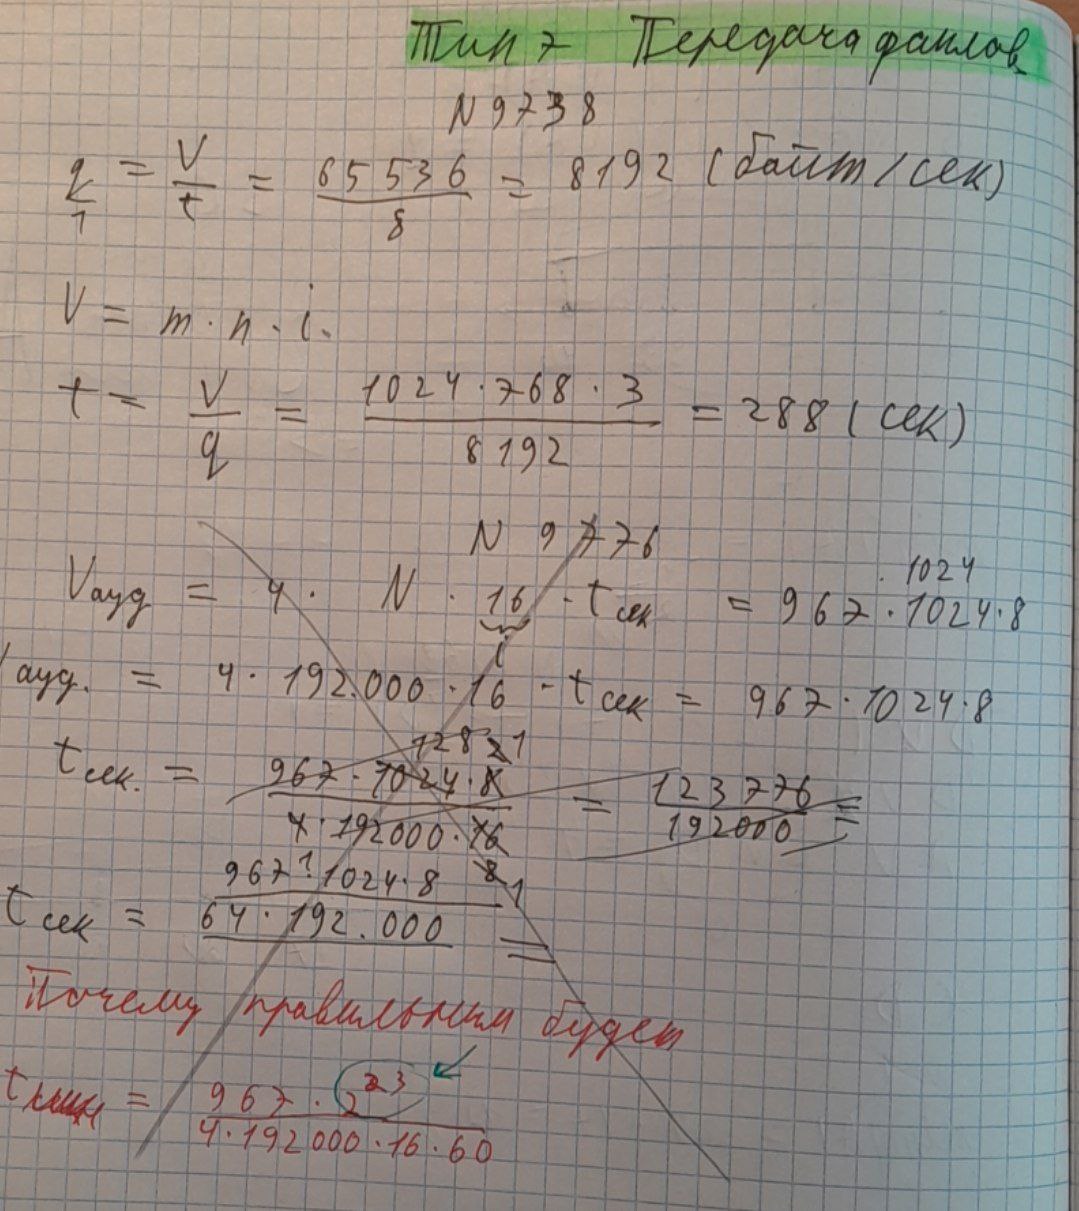 Тип 7 Передача файлов
N 9738
q/1 = V/t = 65536/8 = 8192 (байт/сек)
V = m · n · i.
t = V/q = 1024·768·3/8192 = 288 (сек)
N 9776
Vауд = 4 · N · 16 · tсек = 967 · 1024 · 8
1024
i
Vауд. = 4 · 192.000 · 16 · tсек = 967 · 1024 · 8
tсек. = 967 · 1024 · 8 / 4 · 192000 · 16 = 123776/192000 =
128 2 1
8 1
tсек = 967 · 1024 · 8 / 64 · 192.000 =
Почему правильным будет
tмин = 967 · 2^23 / 4 · 192000 · 16 · 60